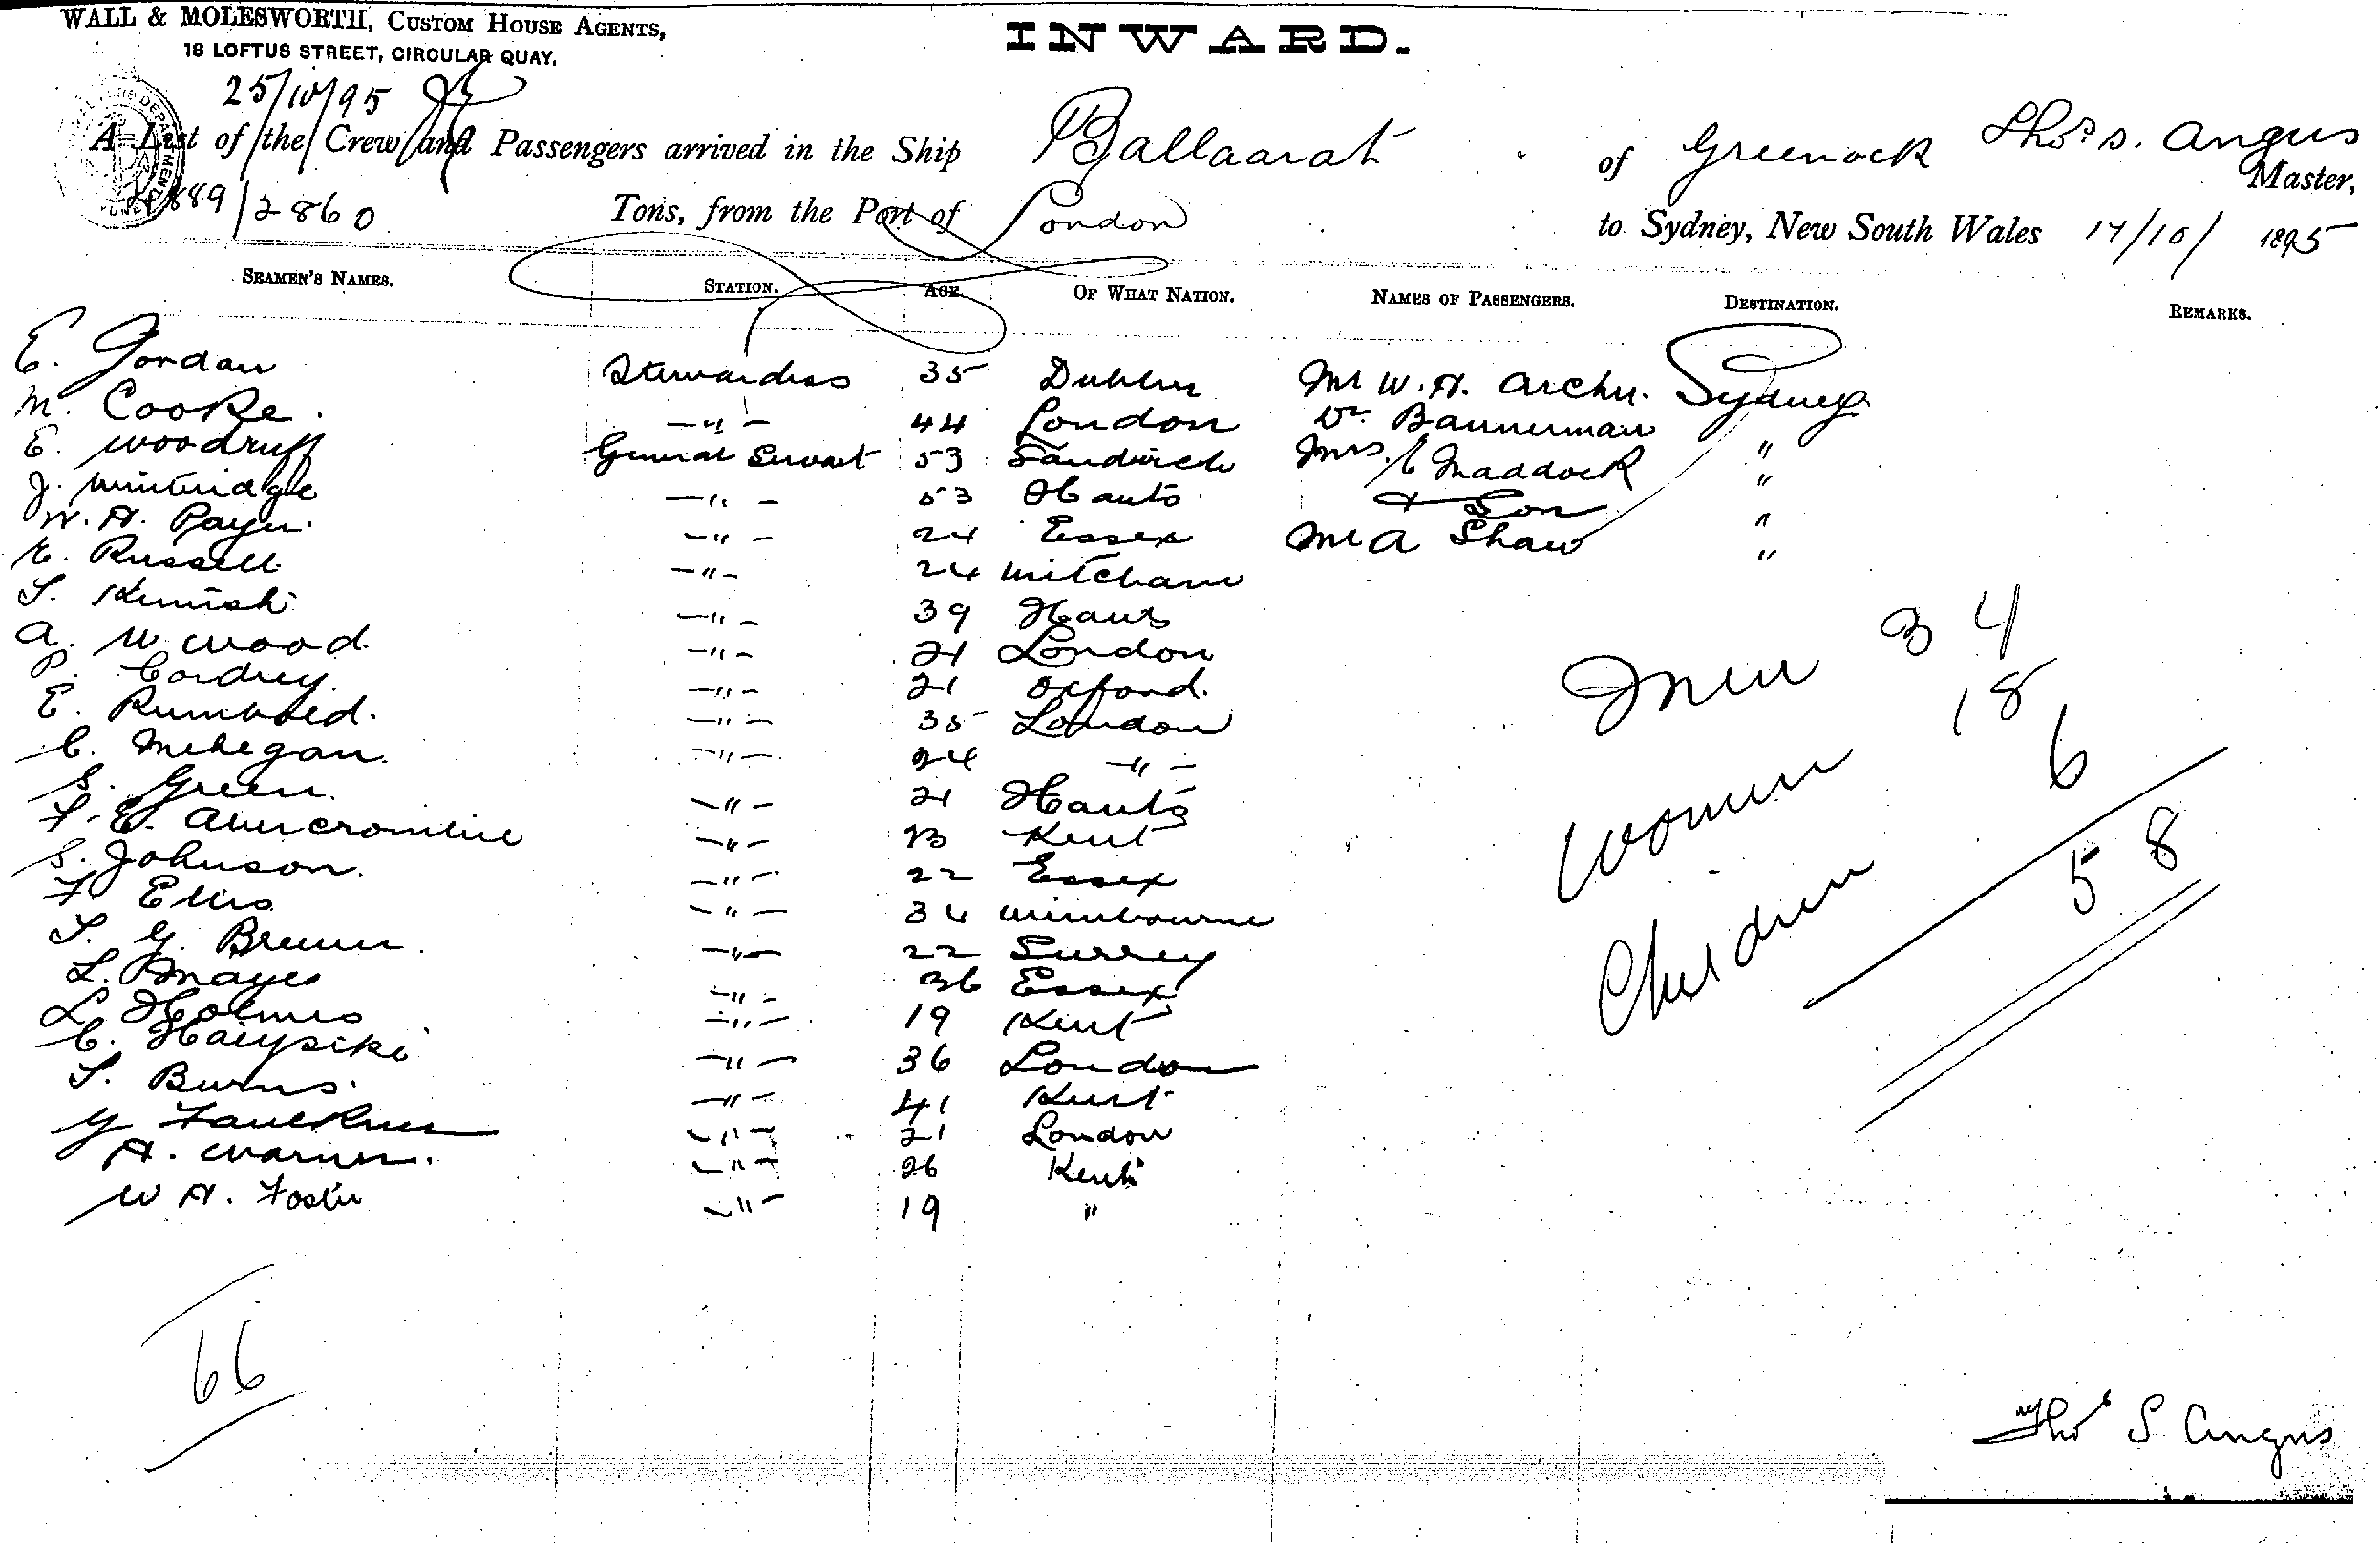 WALL & MOLESWORTH, CUSTOM HOUSE AGENTS,
18 LOFTUS STREET, CIRCULAR QUAY.
INWARD.
25/10/95
A List of the Crew and Passengers arrived in the Ship Ballaarat of Greenock Thos S. Angus Master,
4889/2860 Tons, from the Port of London to Sydney, New South Wales 14/10/1895
SEAMEN'S NAMES. STATION. AGE. OF WHAT NATION. NAMES OF PASSENGERS. DESTINATION. REMARKS.
E. Jordan Stewardess 35 Dublin Mr W. H. Archer. Sydney
M. Cooke. —"— 44 London Dr. Bannerman
E. Woodruff General Servant 53 Sandwich Mrs. Maddock "
J. —"— 53 Hants & Son "
W. H. Payne. —"— 24 Essex Mr A Shaw "
Russell —"— 24 Mitcham "
—"— 39 Hants
A. W. Wood. —"— 21 London
P. Cordrey. —"— 21 Oxford.
E. Rumbold. —"— 35 London
C. Mehegan. —"— 24 —"—
S. Green. —"— 21 Hants
F. E. Abercrombie —"— 23 Kent
S. Johnson. —"— 22 Essex
F. Ellis —"— 34 Wimbourne
—"— 22 Surrey
L. Mayes —"— 36 Essex
L. Holmes —"— 19 Kent
C. —"— 36 London
Burns. —"— 41 Kent
Faulkner —"— 21 London
H. Warner. —"— 26 Kent
W H. Foster —"— 19 "
Men 34
Women 18
Children 6
58
66
Thos S Angus